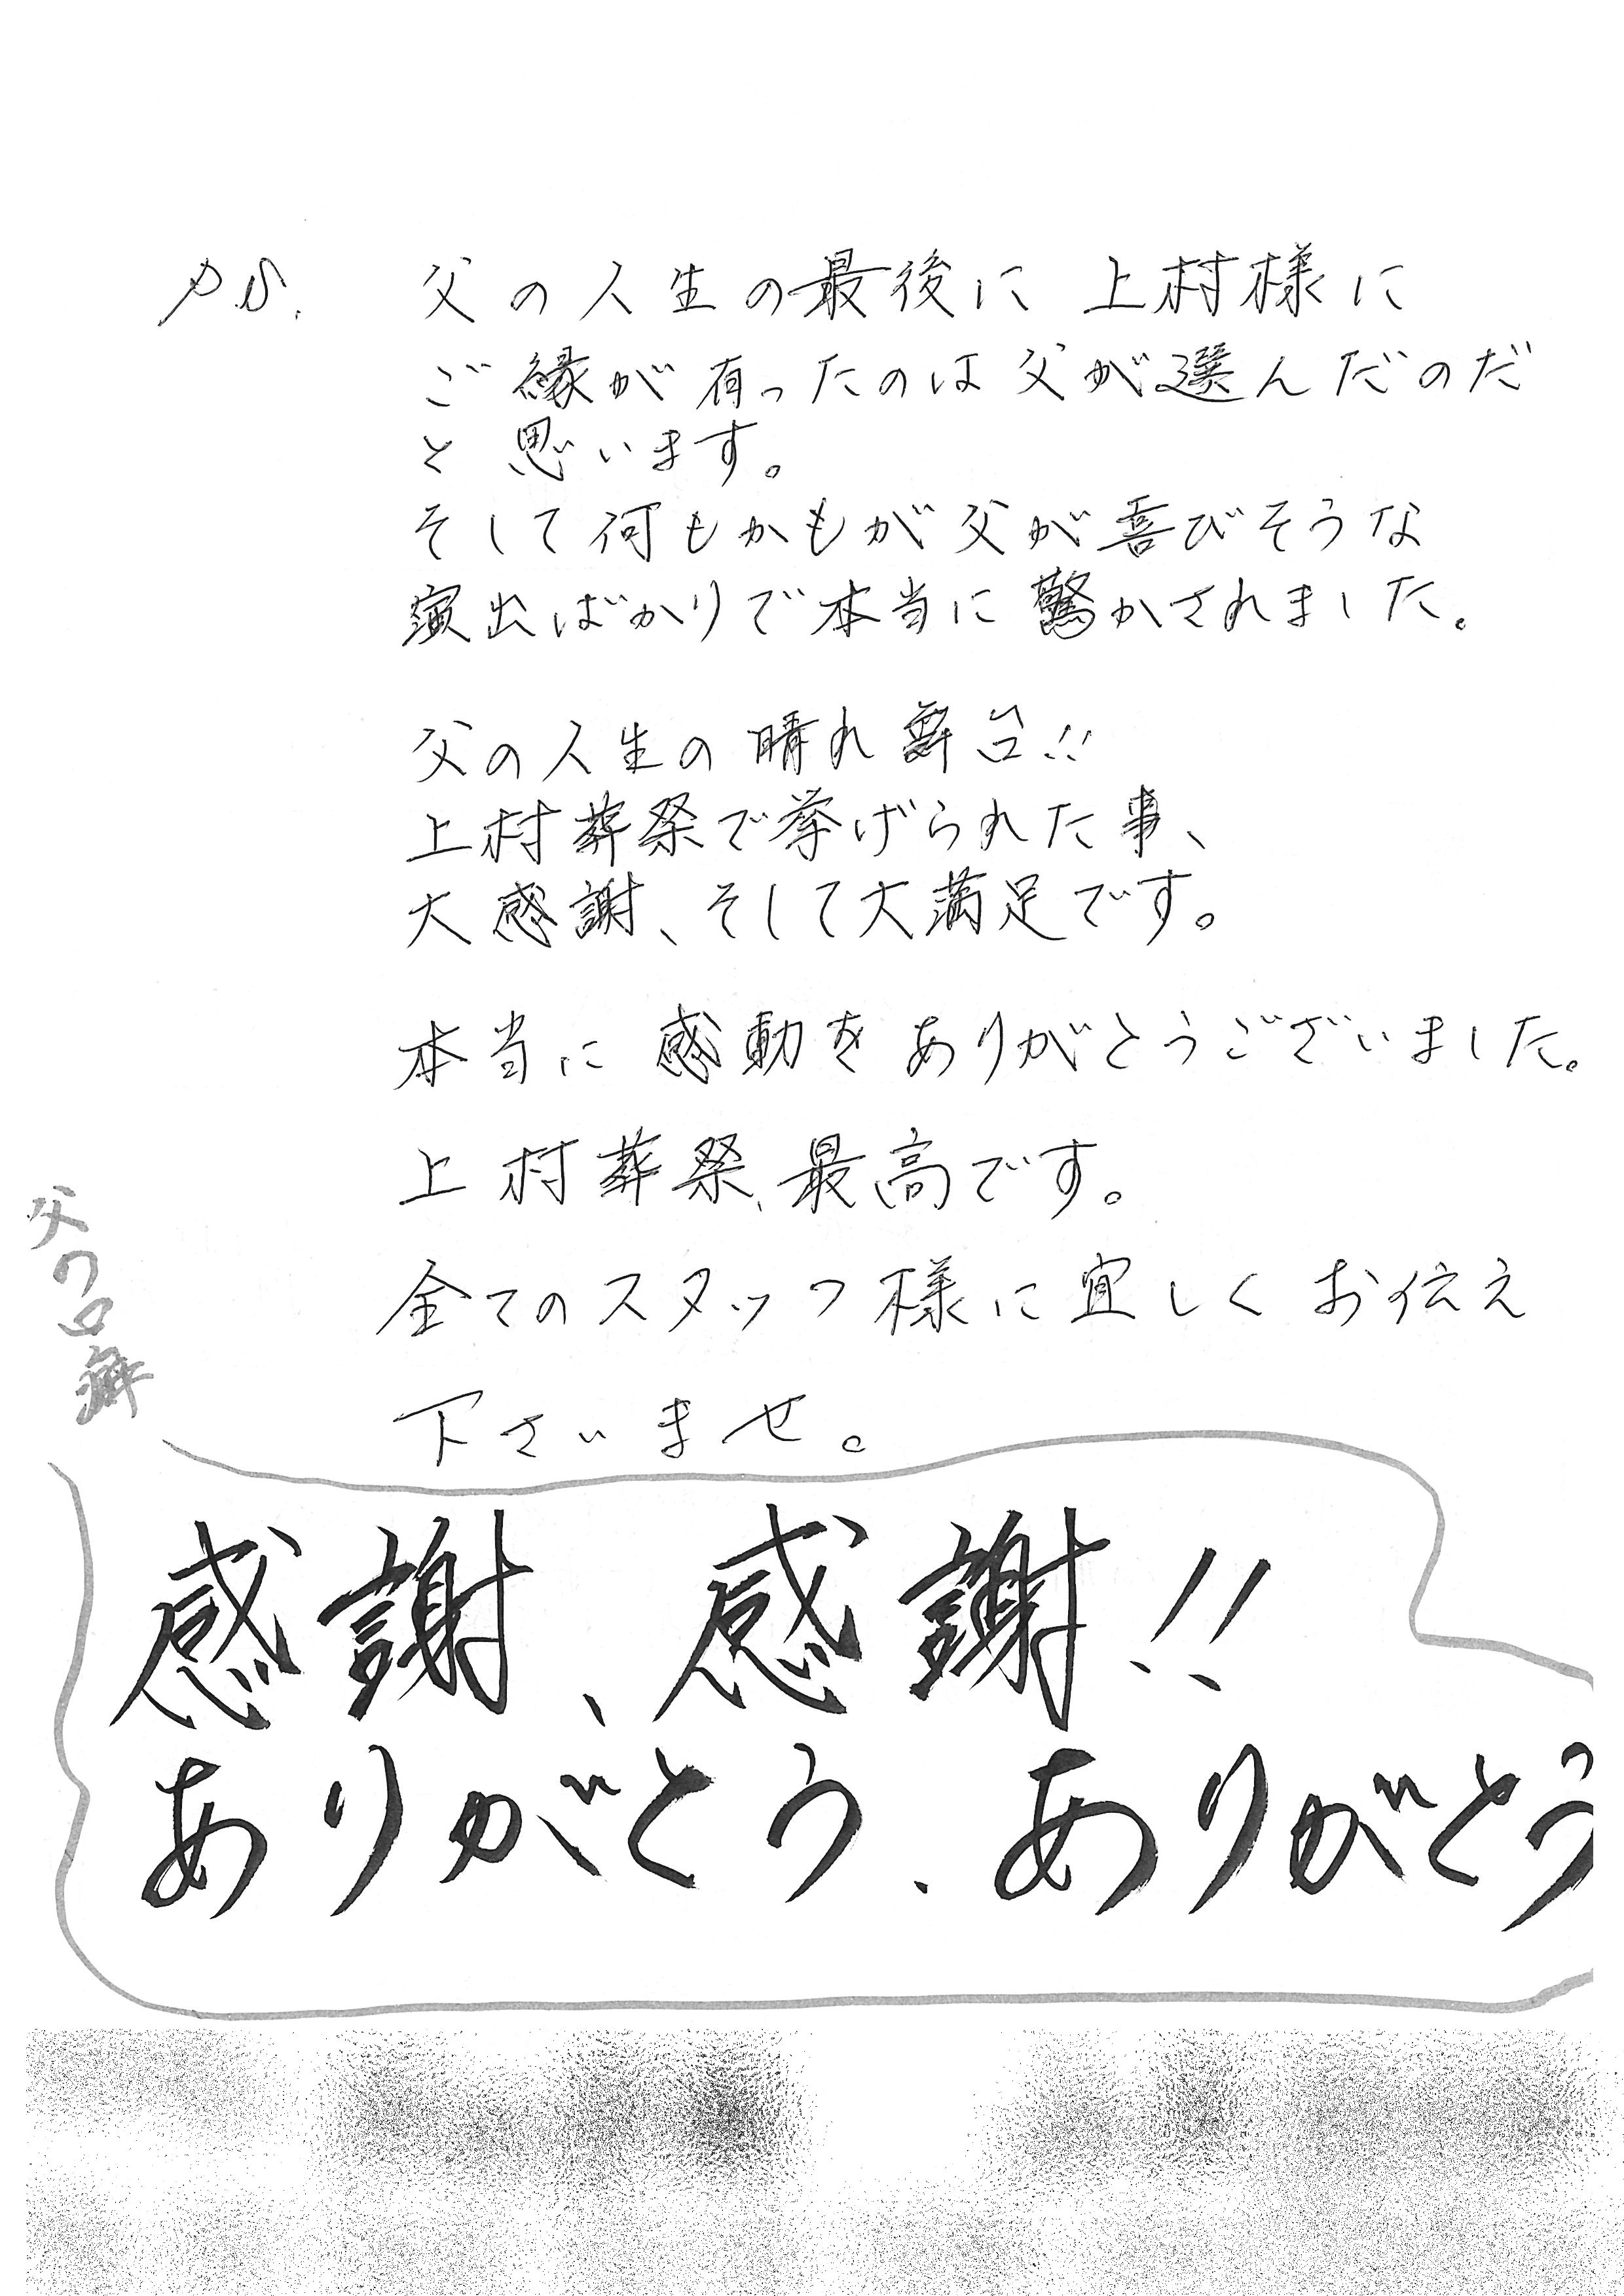 P.S. 父の人生の最後に 上村様に
ご縁が有ったのは父が選んだのだ
と思います。
そして何もかもが父が喜びそうな
演出ばかりで本当に驚かされました。
父の人生の晴れ舞台!!
上村葬祭で挙げられた事、
大感謝、そして大満足です。
本当に感動をありがとうございました。
上村葬祭、最高です。
全てのスタッフ様に宜しくお伝え
下さいませ。
父の口癖
感謝、感謝!!
ありがとう、ありがとう